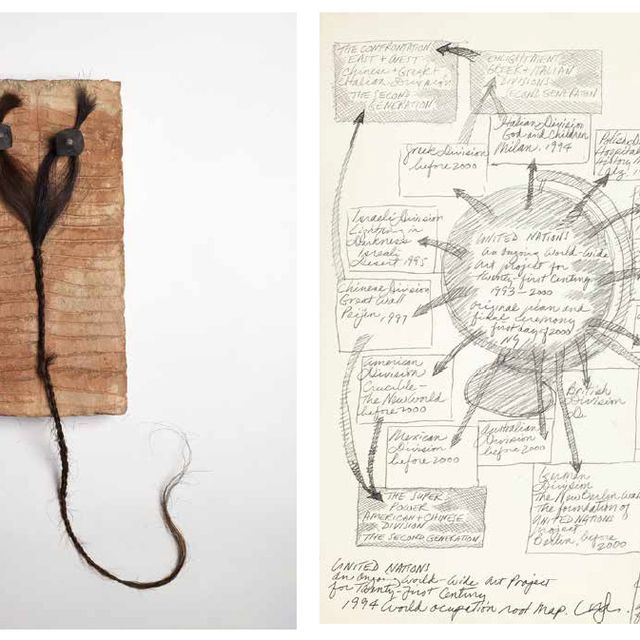 THE CONFRONTATION
EAST + WEST
Chinese + Greek +
Italian Division
THE SECOND
GENERATION
ITALIAN
DIVISIONS
SECOND GENERATION
Italian Division
God and Children
Milan, 1994
Greek Division
before 2000
Polish
Hospital
1
Israeli Division
Lightning in
Darkness
Israeli
Desert 1995
UNITED NATIONS
an ongoing world-wide
art project for
twenty-first Century
1993-2000
original plan and
final ceremony
first day of 2000
NY
Chinese Division
Great Wall
1997
American
Division
Crucible-
The New World
before 2000
British
Division
Mexican
Division
before 2000
Australian
Division
before 2000
German
Division
The New Berlin Wall
The foundation of
UNITED NATIONS
project
Berlin, before
2000
THE SUPER
POWER
AMERICAN + CHINESE
DIVISION
THE SECOND GENERATION
UNITED NATIONS
an ongoing World-Wide Art Project
for Twenty-first Century
1994 World ocupation root Map.